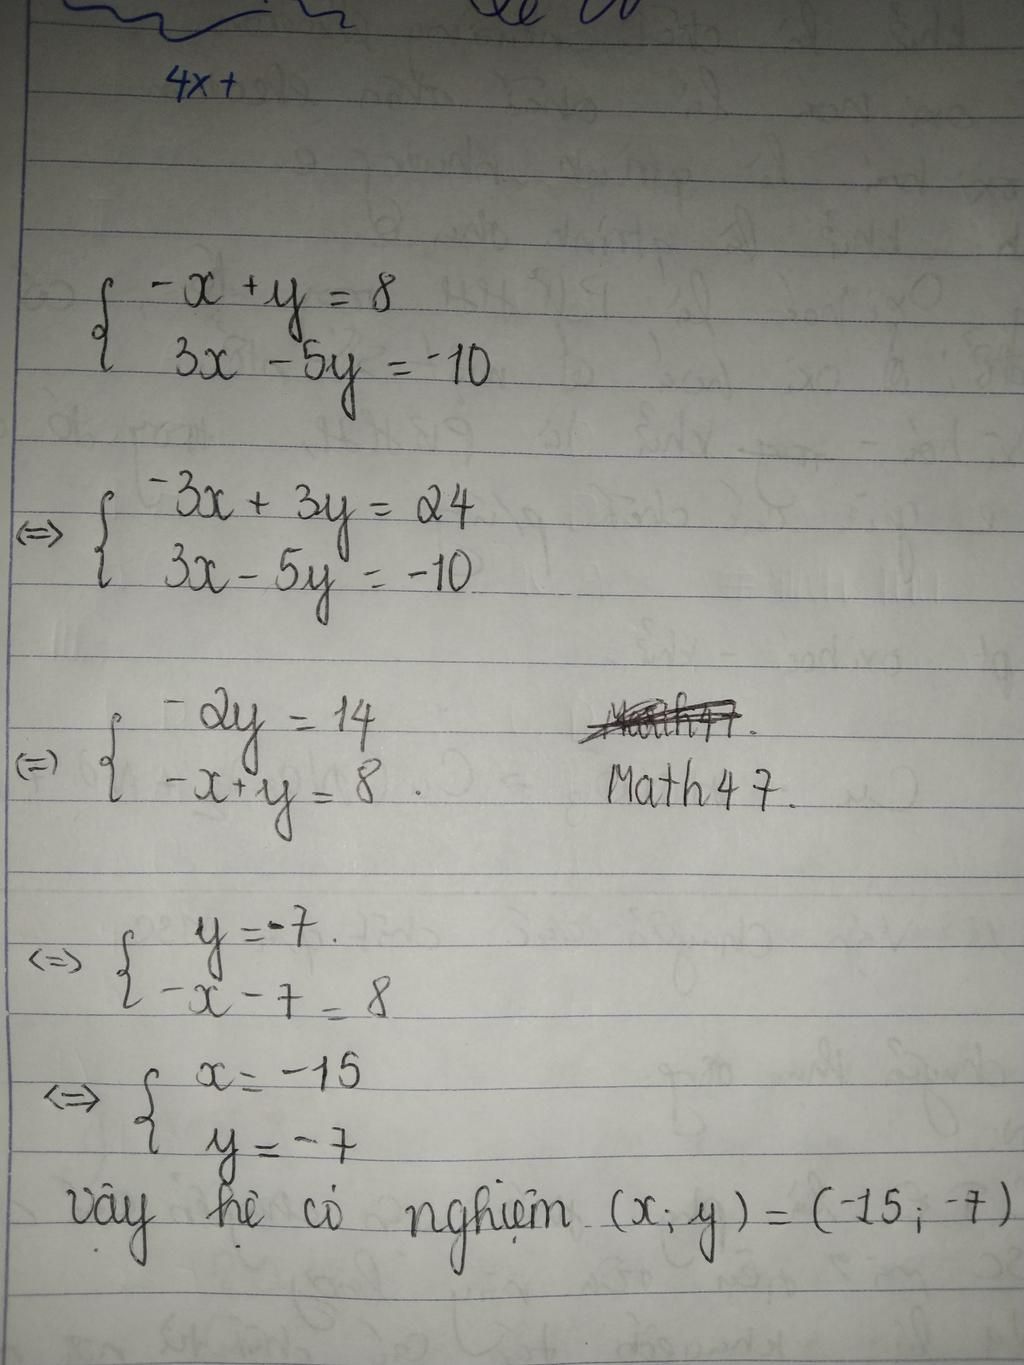 4x+
-x + y = 8
3x - 5y = -10
<=> -3x + 3y = 24
3x - 5y = -10
(=) -2y = 14
-x + y = 8 .
Math 47.
<=> y = -7.
-x - 7 = 8
<=> x = -15
y = -7
Vậy hệ có nghiệm (x; y) = (-15; -7)